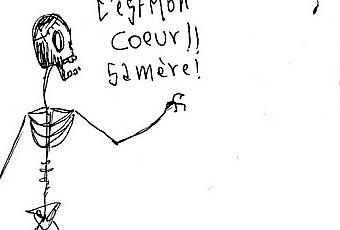 C'EST MON
COEUR!!
SAMÈRE!